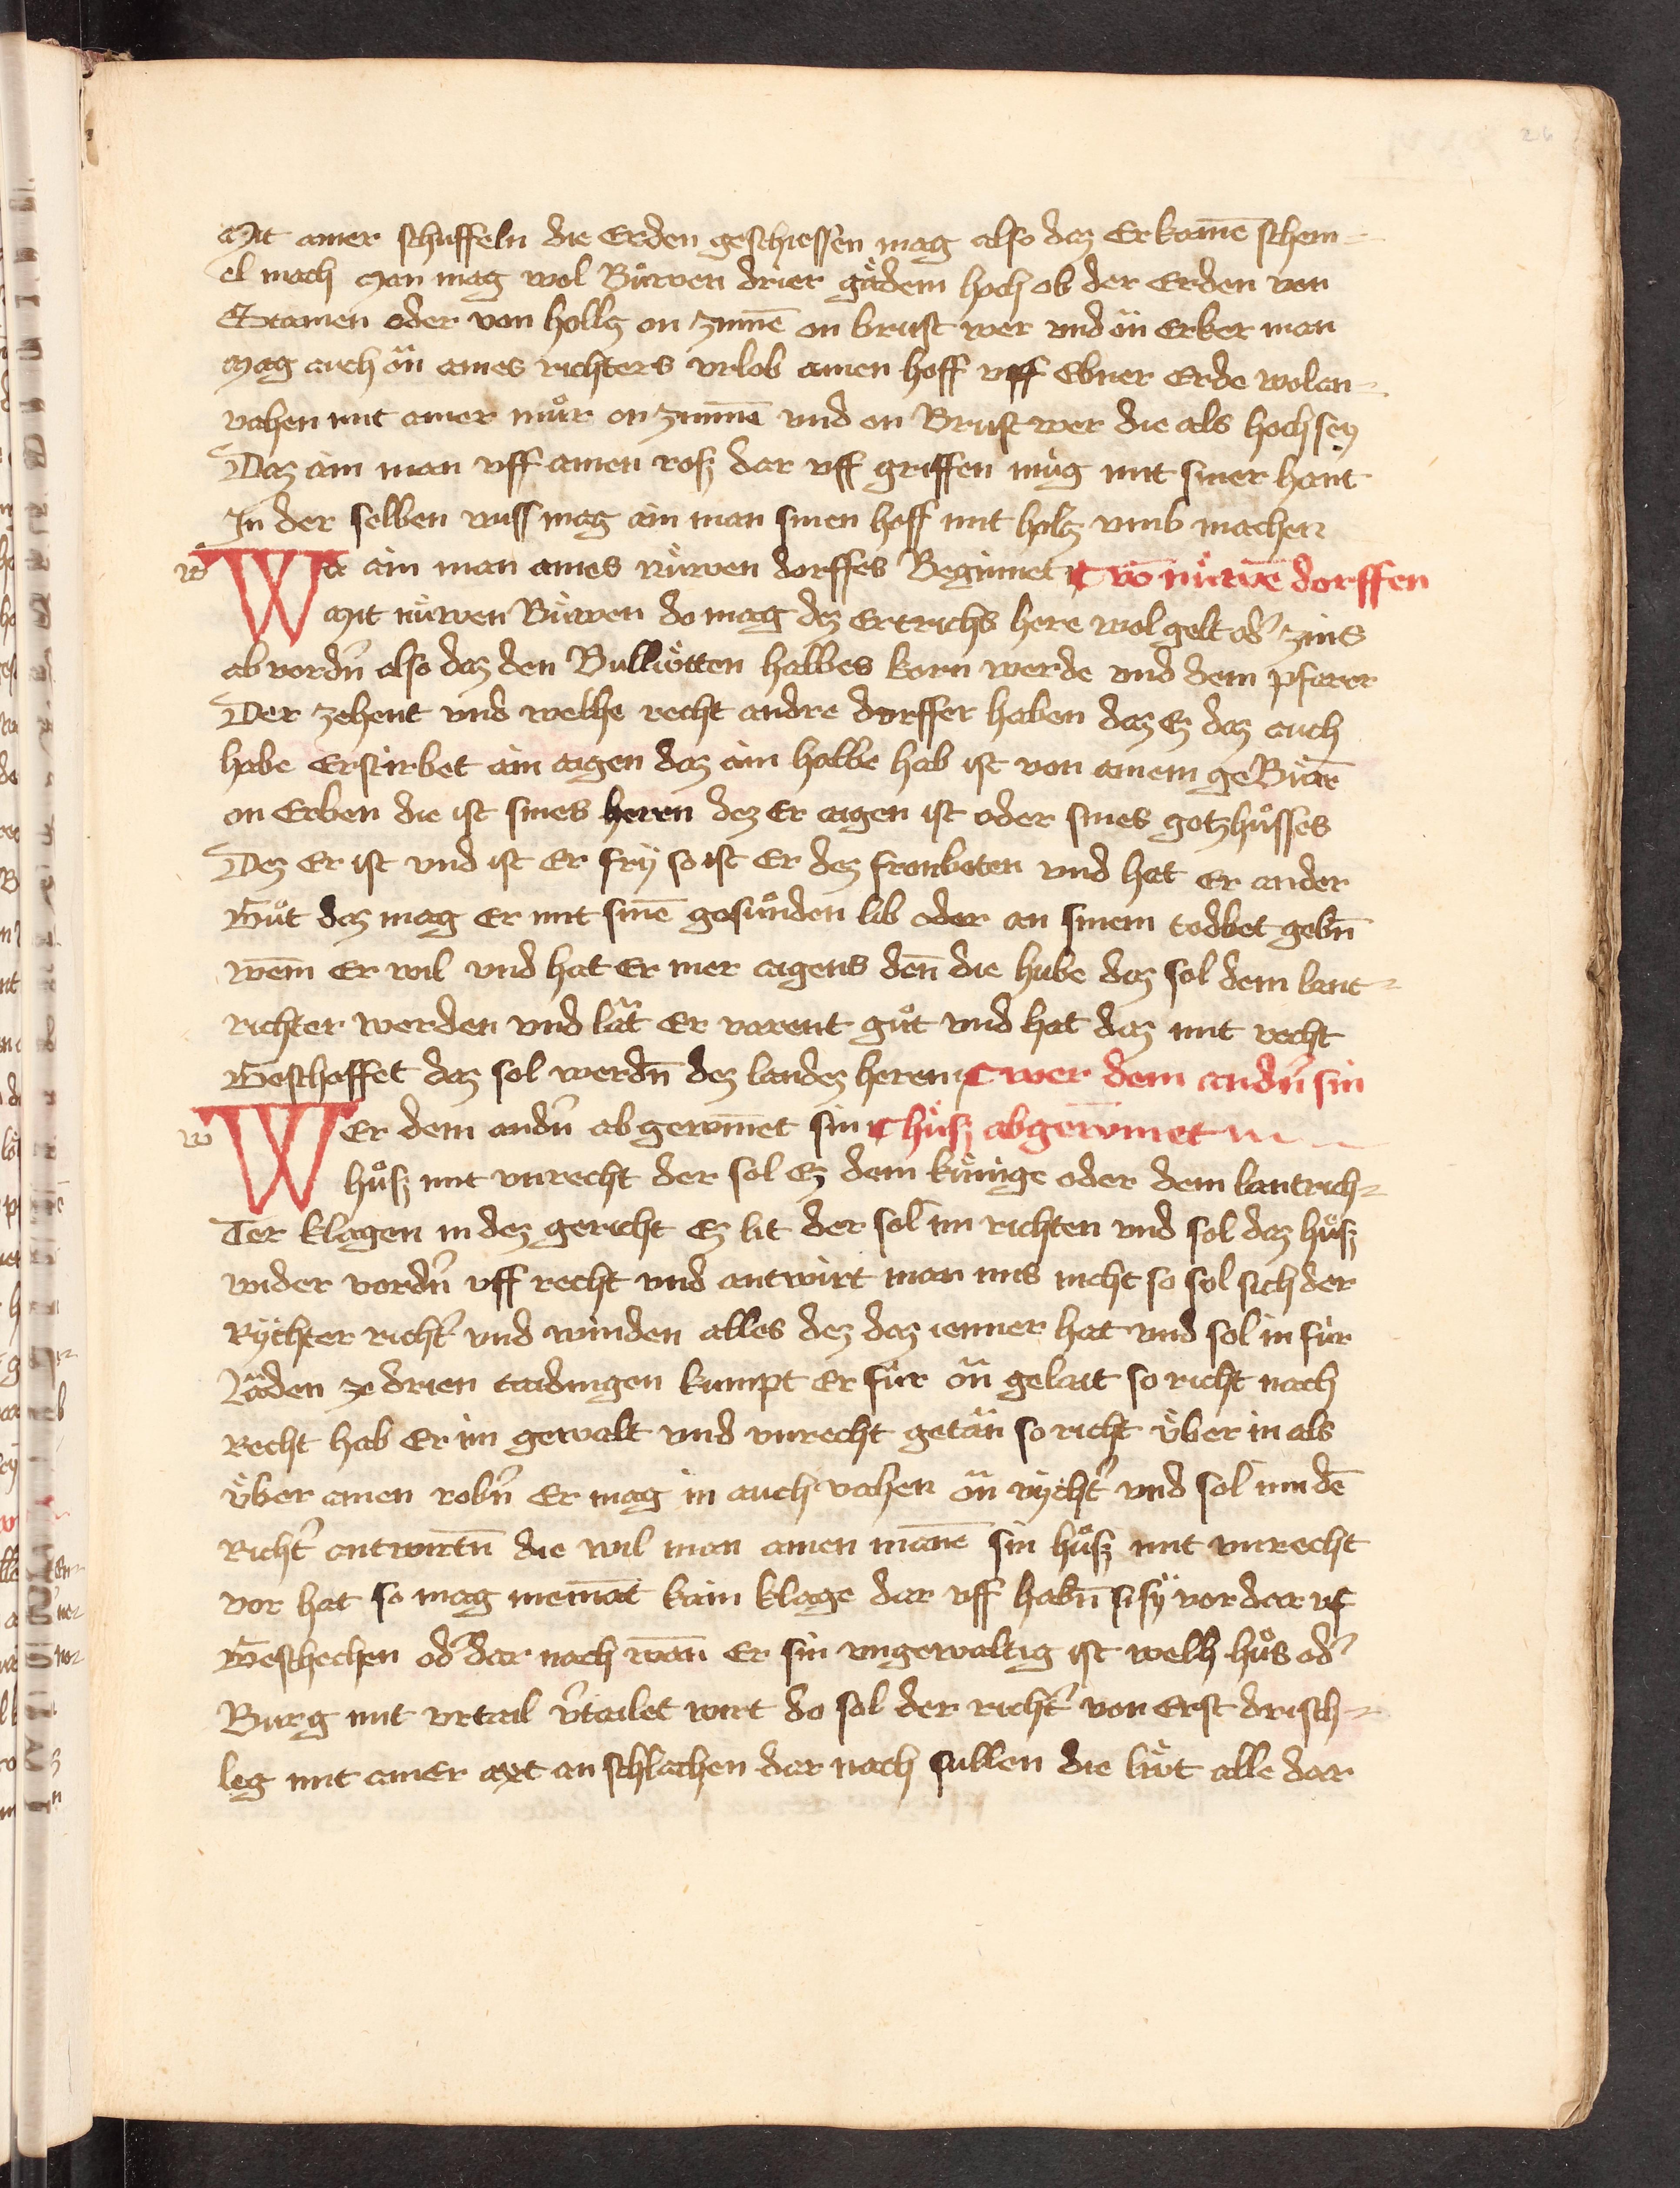 26
Mit ainer schuffeln die Erden geschiessen mag also daz Er kainē schem⸗
el mach Man mag wol Bůwen drier gådem hoch ob der Erden von
Stainen oder von holtz on zinnē on brust wer vnd ön Erker man
Mag auch ön aines richters vrlob ainen hoff vff Ebner Erde wol an⸗
vahen mit ainer můr on zinnē vnd on Brust wer die als hoch sey
Daz ain man vff ainen roß dar vff griffen müg mit siner hant
In der selben wiss mag ain man sinen hoff mit holtz vmb machen
w Wa ain man aines nüwen dorffes Beginnet ¶ võ nüwē dorffen
Mit nüwen Büwen do mag dez Ertrichs here wol gelt od᷑ zins
ab vordn᷑ also daz den Bulütten halbes korn werde vnd dem pfarer
Der zehent vnd welhe recht andre dorffer haben daz Ez daz auch
habe Erstirbet ain aigen daz ain halbe hab ist von ainem geBurē
on Erben die ist sines herrn dez Er aigen ist oder sines gotzhůsses
Dez Er ist vnd ist Er fry so ist Er dez fronboten vnd hat Er ander
Gůt daz mag Er mit sinē gesunden lib oder an sinem todbet gebn̄
wem̄ Er wil vnd hat Er mer aigens den̄ die hube daz sol dem lant⸗
richter werden vnd låt Er varent gůt vnd hat daz mit recht
Geschaffet daz sol werdn̄ dez landez herem ¶ wer dem andn᷑ sin
w WEr dem andn᷑ ab gewin̄et sin ¶ hůß abgewin̄et
hůß mit vnrecht der sol Ez dem künige oder dem lantrich⸗
Ter klagen in dez gericht Ez lit der sol im richten vnd sol daz hůß
wider vordn᷑ vff recht vnd antwirt man ims nicht so sol sich der
Rychter richt᷑ vnd winden alles dez daz ienner hat vnd sol in für
Låden ze drien taidingen kumpt Er für ön gelait so richt nach
Recht hab Er im gewalt vnd vnrecht getån so richt über in als
über ainen robn᷑ Er mag in auch vahen ön rycht᷑ vnd sol im dē
Richt᷑ antwirtn̄ die wil man ainen man̄e sin hůß mit vnrecht
vor hat so mag niemāt kain klage dar vff habn̄ si sy vor dar vf
Geschechen od᷑ dar nach wan̄ Er sin vngewaltig ist welh hůs od᷑
Burg mit vrtail v᷑tailet wirt do sol der richt᷑ von Erst drisch⸗
leg mit ainer axt an schlachen dar nach sullen die lüt alle dar